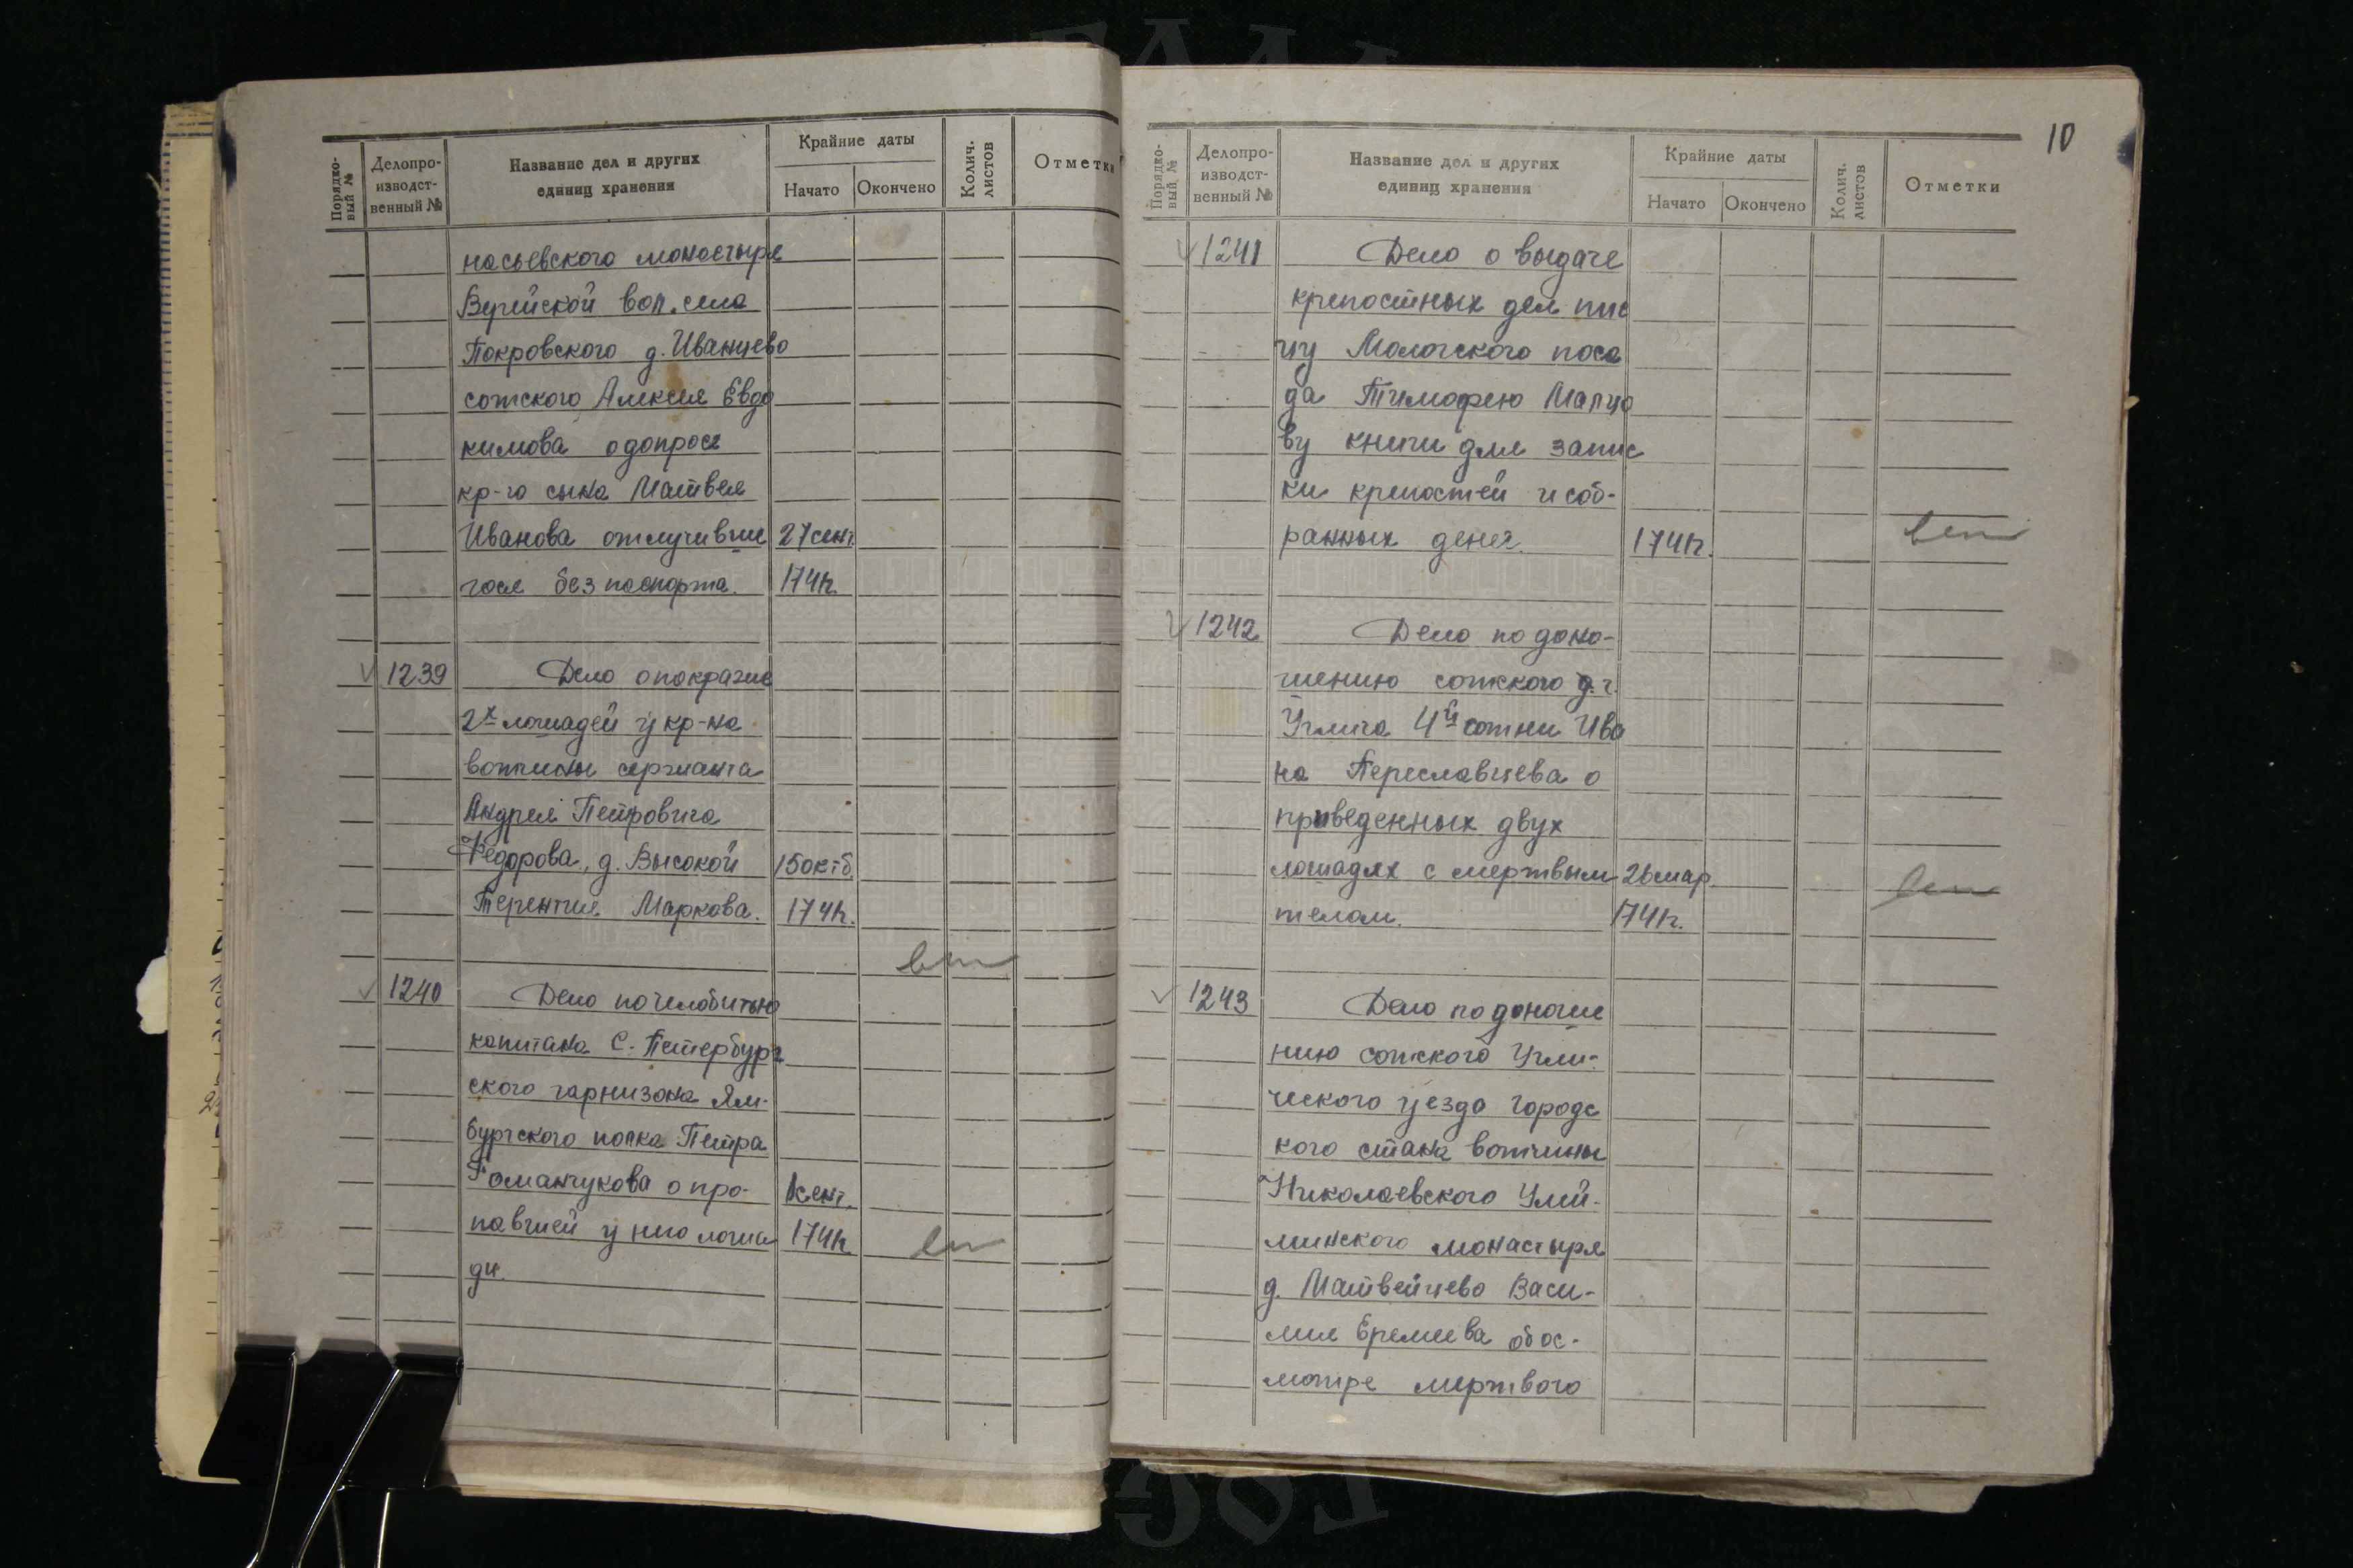 Порядко-вый №
Делопро-изводст-венный №
Название дел и других единиц хранения
Крайние даты
Начато
Окончено
Колич. листов
Отметки
насьевского монастыря
Верейской вол. села
Покровского д. Иванцево
сотского Алексея Евдо
кимова о допросе
кр-го сына Матвея
Иванова отлучивше 27 сент.
гося без паспорта. 174
1239 Дело о покраже
2х лошадей у кр-на
вотчины сержанта
Андрея Петровича
Федорова, д. Высокой 15 октб.
Терентия Маркова. 174
1240 Дело по челобитью
капитана С. Петербург
ского гарнизона Ям-
бургского полка Петра
Романчукова о про- сент.
павшей у него лоша 174
ди.
10
Порядко-вый №
Делопро-изводст-венный №
Название дел и других единиц хранения
Крайние даты
Начато
Окончено
Колич. листов
Отметки
1241 Дело о выдаче
крепостных дел пис
цу Мологского поса
да Тимофею Мальцо
ву книги для запис
ки крепостей и соб-
ранных денег. 174
1242 Дело по доно-
шению сотского г.
Углича 4й сотни Ива
на Переславцева о
приведенных двух
лошадях с мертвым 26 мар.
телом. 174
1243 Дело по доноше
нию сотского Угли-
ческого уезда городс
кого стана вотчины
Николаевского Улей-
минского монастыря
д. Матвейцево Васи-
лия Еремеева об ос-
мотре мертвого